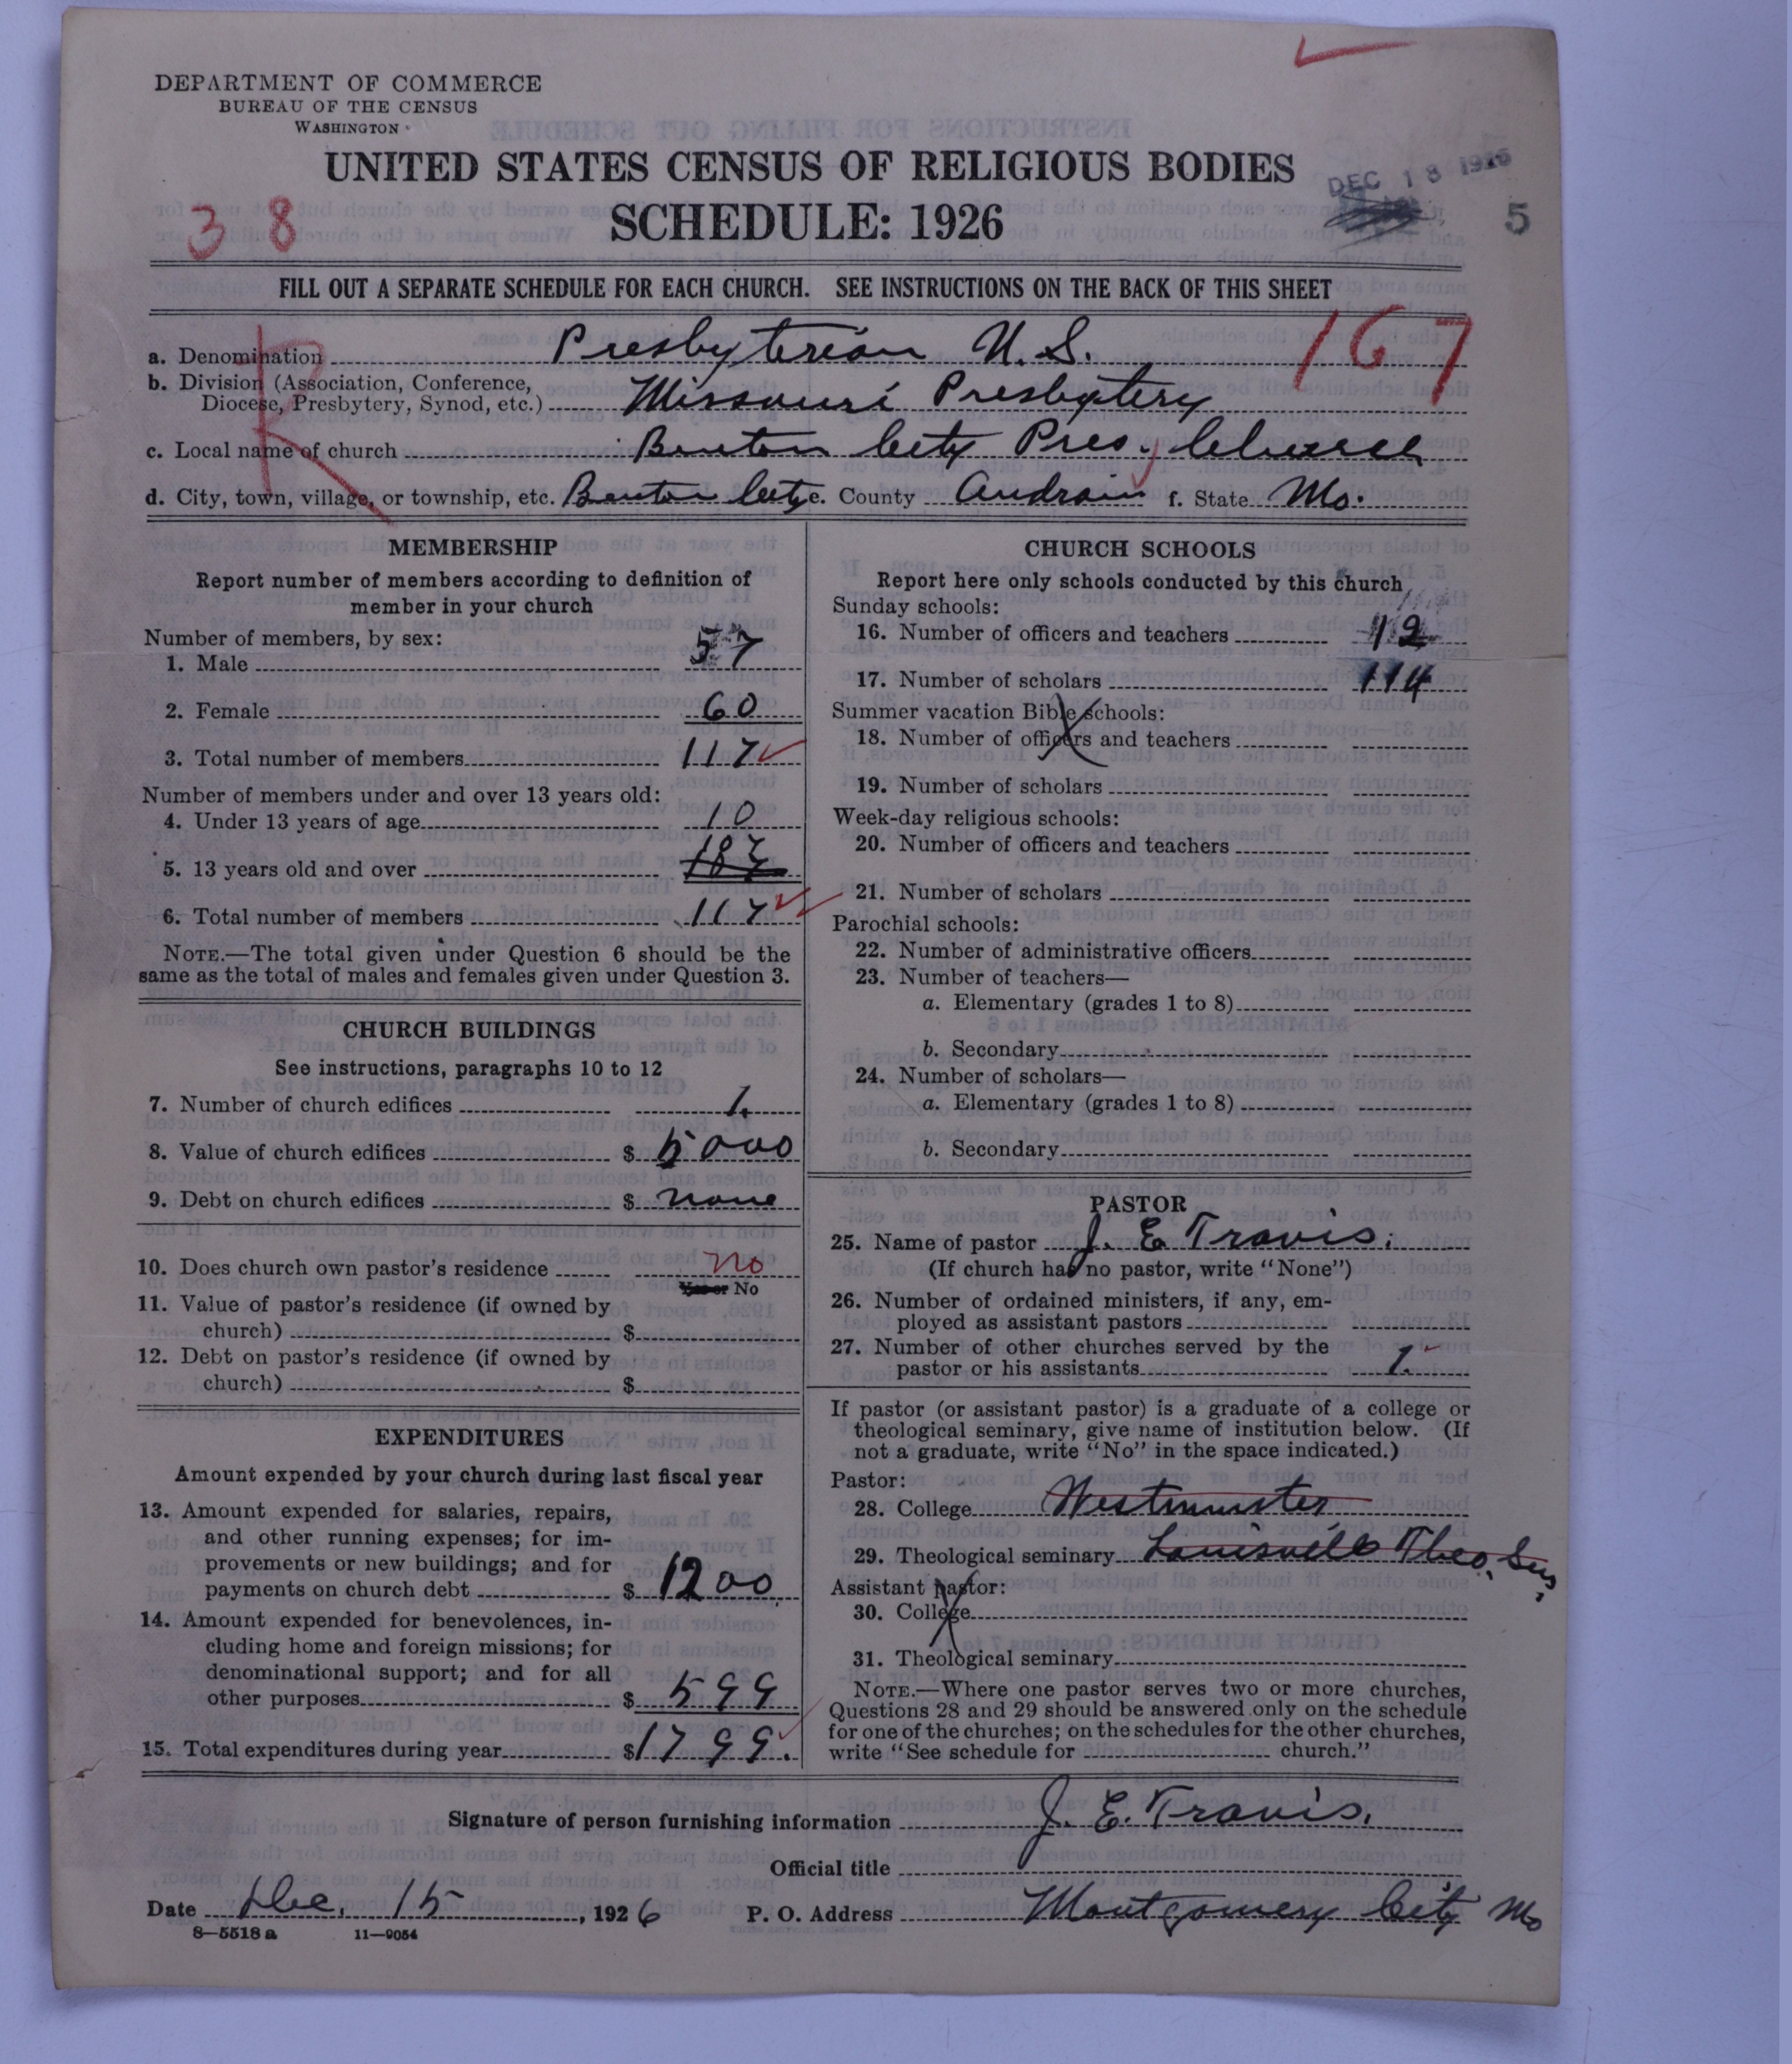 DEPARTMENT OF COMMERCE
BUREAU OF THE CENSUS
WASHINGTON
UNITED STATES CENSUS OF RELIGIOUS BODIES
DEC 18 1926
38
SCHEDULE: 1926
5
FILL OUT A SEPARATE SCHEDULE FOR EACH CHURCH. SEE INSTRUCTIONS ON THE BACK OF THIS SHEET
R
167
a. Denomination Presbyterian U.S.
b. Division (Association, Conference,
Diocese, Presbytery, Synod, etc.) Missouri Presbytery
c. Local name of church Benton City Pres. Church
d. City, town, village, or township, etc. Benton City e. County Audrain f. State Mo.
MEMBERSHIP
Report number of members according to definition of
member in your church
Number of members, by sex:
1. Male 57
2. Female 60
3. Total number of members 117
Number of members under and over 13 years old:
4. Under 13 years of age 10
5. 13 years old and over
6. Total number of members 117
NOTE.—The total given under Question 6 should be the
same as the total of males and females given under Question 3.
CHURCH BUILDINGS
See instructions, paragraphs 10 to 12
7. Number of church edifices 1.
8. Value of church edifices $ 5000
9. Debt on church edifices $ none
10. Does church own pastor's residence no
Yes or No
11. Value of pastor's residence (if owned by
church) $
12. Debt on pastor's residence (if owned by
church) $
EXPENDITURES
Amount expended by your church during last fiscal year
13. Amount expended for salaries, repairs,
and other running expenses; for im-
provements or new buildings; and for
payments on church debt $ 1200
14. Amount expended for benevolences, in-
cluding home and foreign missions; for
denominational support; and for all
other purposes $ 599
15. Total expenditures during year $ 1799.
CHURCH SCHOOLS
Report here only schools conducted by this church
Sunday schools:
16. Number of officers and teachers 12
17. Number of scholars 114
Summer vacation Bible schools:
18. Number of officers and teachers
19. Number of scholars
Week-day religious schools:
20. Number of officers and teachers
21. Number of scholars
Parochial schools:
22. Number of administrative officers
23. Number of teachers—
a. Elementary (grades 1 to 8)
b. Secondary
24. Number of scholars—
a. Elementary (grades 1 to 8)
b. Secondary
PASTOR
25. Name of pastor J. E. Travis.
(If church has no pastor, write "None")
26. Number of ordained ministers, if any, em-
ployed as assistant pastors
27. Number of other churches served by the
pastor or his assistants 1.
If pastor (or assistant pastor) is a graduate of a college or
theological seminary, give name of institution below. (If
not a graduate, write "No" in the space indicated.)
Pastor:
28. College Westminster
29. Theological seminary Louisville Theo. Sem.
Assistant pastor:
30. College
31. Theological seminary
NOTE.—Where one pastor serves two or more churches,
Questions 28 and 29 should be answered only on the schedule
for one of the churches; on the schedules for the other churches,
write "See schedule for church."
Signature of person furnishing information J. E. Travis.
Official title
Date Dec. 15, 1926 P. O. Address Montgomery City Mo
8—5518a 11—9054